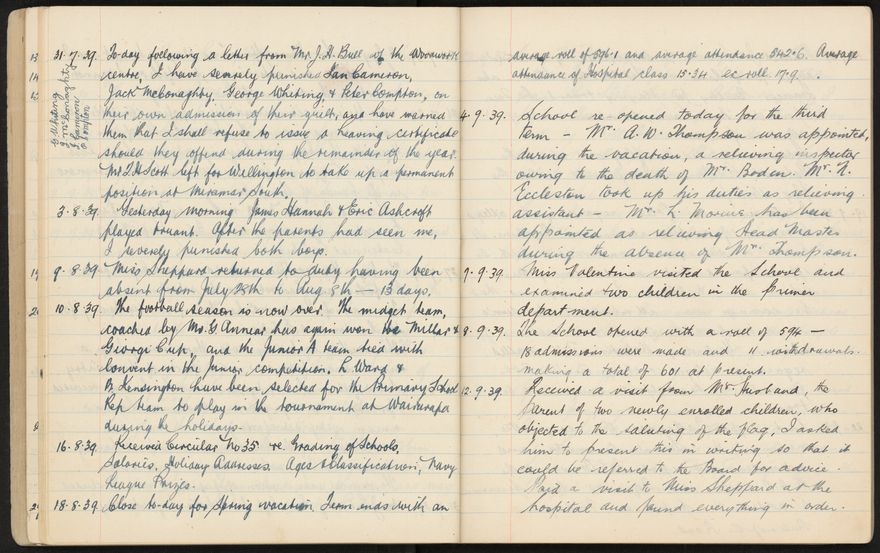 31.7.39. To-day following a letter from Mr. J. H. Bull of the Woodwork
centre, I have severely punished Ian Cameron,
Jack McConaghty, George Whiting, & Peter Compton, on
their own admission of their guilt, and have warned
them that I shall refuse to issue a leaving certificate
should they offend during the remainder of the year.
Mr. Scott left for Wellington to take up a permanent
position at Miramar South.
3.8.39. Yesterday morning James Hannah & Eric Ashcroft
played truant. After the parents had seen me,
I severely punished both boys.
9.8.39. Miss Sheppard returned to duty having been
absent from July 28th to Aug 8th — 13 days.
10.8.39. The football season is now over. The midget team,
coached by Mr. G. Annear has again won the Millar &
Giorgi Cup, and the Junior A team tied with
Convent in the Junior competition. L. Ward &
B. Kensington have been selected for the Primary School
Rep team to play in the tournament at Wairarapa
during the holidays.
16.8.39. Receive Circular No 35 re Grading of Schools,
Salaries, Holiday Addresses. Ages & Classification, Navy
League Prizes.
18.8.39. Close to-day for Spring vacation. Term ends with an
G Whiting
J McConaghty
I Cameron
Compton
average roll of 596.1 and average attendance 542.6. Average
attendance of Hospital class 15.34 ec roll 17.9.
4.9.39. School re-opened today for the third
term — Mr. A. W. Thompson was appointed,
during the vacation, a relieving inspector
owing to the death of Mr. Boden. Mr. N.
Eccleston took up his duties as relieving
assistant — Mr. L. has been
appointed as relieving Head Master
during the absence of Mr. Thompson.
7.9.39. Miss Valentine visited the School and
examined two children in the primer
department.
8.9.39. The School opened with a roll of 594 —
18 admissions were made and 11 withdrawals.
making a total of 601 at present.
12.9.39. Received a visit from Mr. Husband, the
parent of two newly enrolled children, who
objected to the saluting of the flag, I asked
him to present this in writing so that it
could be referred to the Board for advice.
Paid a visit to Miss Sheppard at the
hospital and found everything in order.